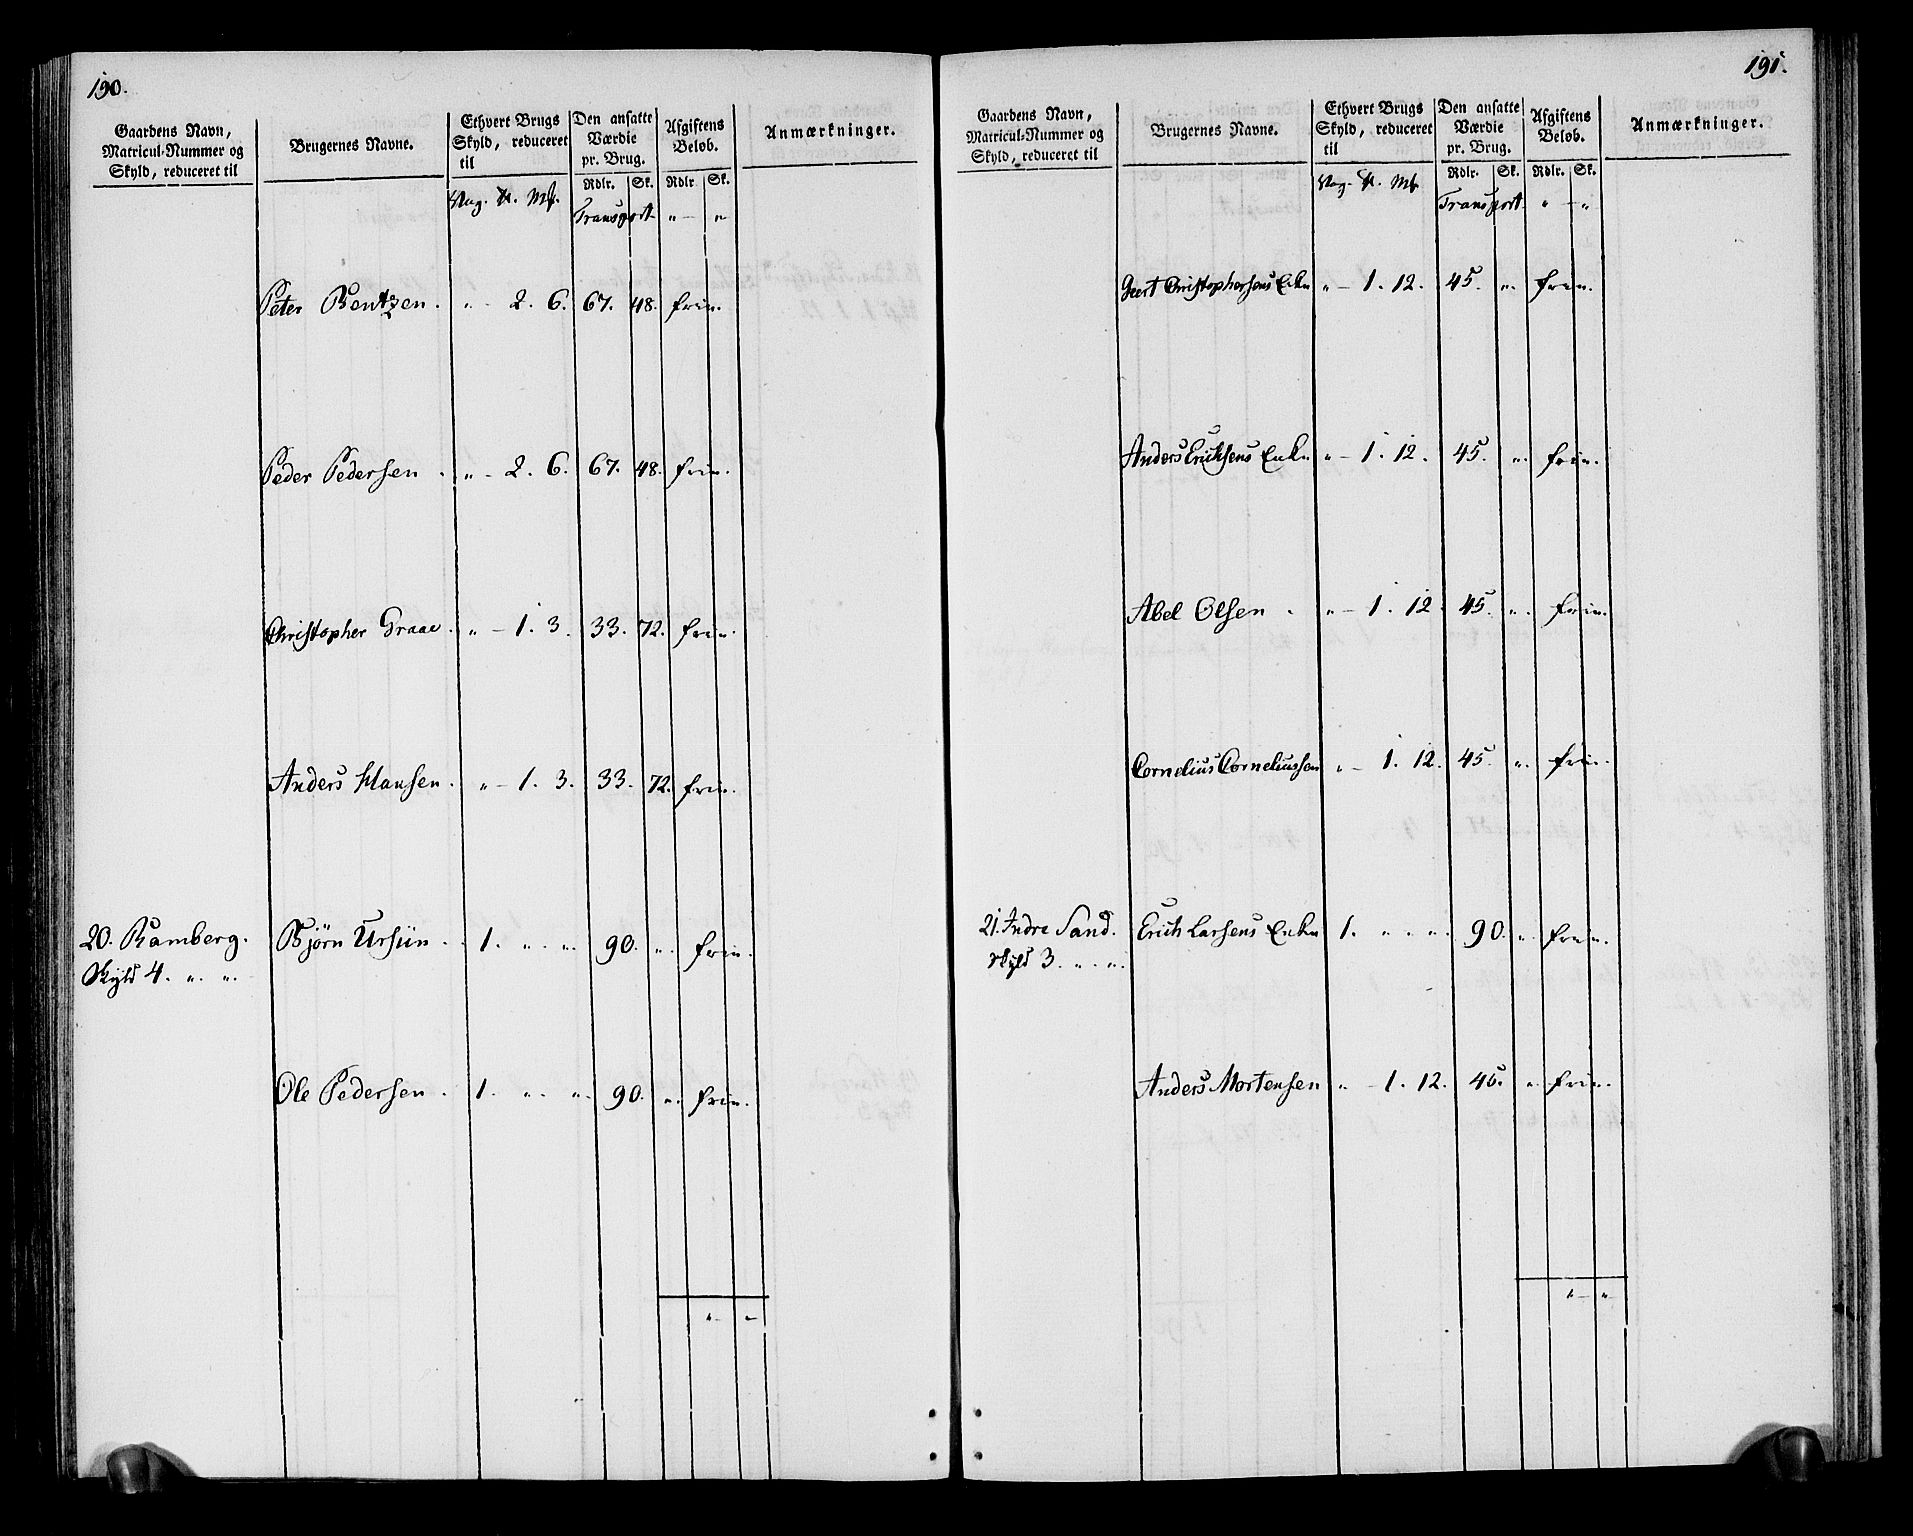 190.
Gaardens Navn, Matricul-Nummer og Skyld, reduceret til | Brugernes Navne. | Ethvert Brugs Skyld, reduceret til | Den ansatte Værdie pr. Brug. | Afgiftens Beløb. | Anmærkninger.
Vaag. ℔. Mk. | Rdlr. | Sk. | Rdlr | Sk.
Transport „ – „
Peter Bentzen. „ - 2. 6. 67. 48. frie.
Peder Pedersen . „ - 2. 6. 67. 48. frie.
Christopher Graae. „ - 1. 3. 33. 72. frie.
Anders Hansen. „ - 1. 3. 33. 72. frie.
20. Ramberg. Bjørn Ursiin . 1. „. „. 90. „. frie.
Skyld 4. „. „.
Ole Pedersen . 1. „. „. 90. „. frie.
„ – „
191.
Gaardens Navn, Matricul-Nummer og Skyld, reduceret til | Brugernes Navne. | Ethvert Brugs Skyld, reduceret til | Den ansatte Værdie pr. Brug. | Afgiftens Beløb. | Anmærkninger.
Vaag. ℔. Mk. | Rdlr. | Sk. | Rdlr. | Sk.
Transport „ – „
Geert Christophersens Enke „ - 1. 12. 45. „. frie.
Anders Erichsens Enke „ - 1. 12. 45. „. frie.
Abel Olsen . „ - 1. 12. 45. „. frie.
Cornelius Corneliussen „ - 1. 12. 45. „. frie.
21. Indre Sand. Erich Larsens Enke 1. „. „. 90. „. frie.
Skyld 3. „. „.
Anders Mortensen „ - 1. 12. 45. „. frie.
„ – „